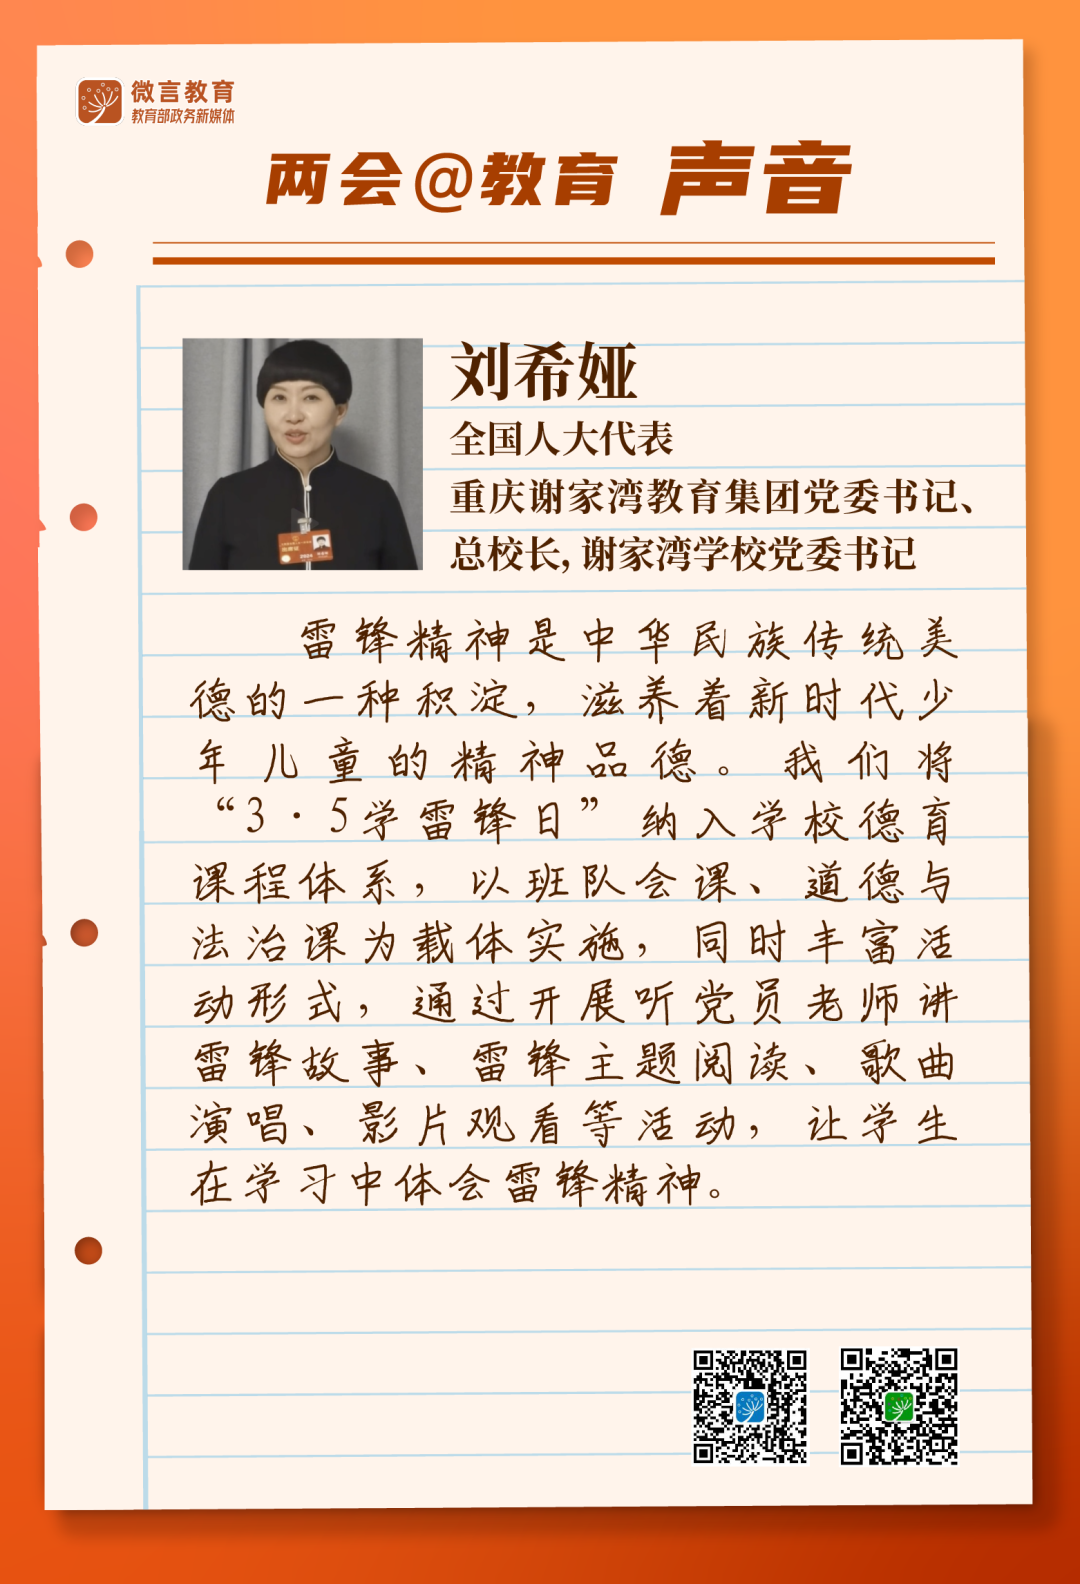 微言教育
教育部政务新媒体
两会@教育 声音
刘希娅
全国人大代表
重庆谢家湾教育集团党委书记、
总校长,谢家湾学校党委书记
雷锋精神是中华民族传统美
德的一种积淀，滋养着新时代少
年儿童的精神品德。我们将
“3·5学雷锋日”纳入学校德育
课程体系，以班队会课、道德与
法治课为载体实施，同时丰富活
动形式，通过开展听党员老师讲
雷锋故事、雷锋主题阅读、歌曲
演唱、影片观看等活动，让学生
在学习中体会雷锋精神。